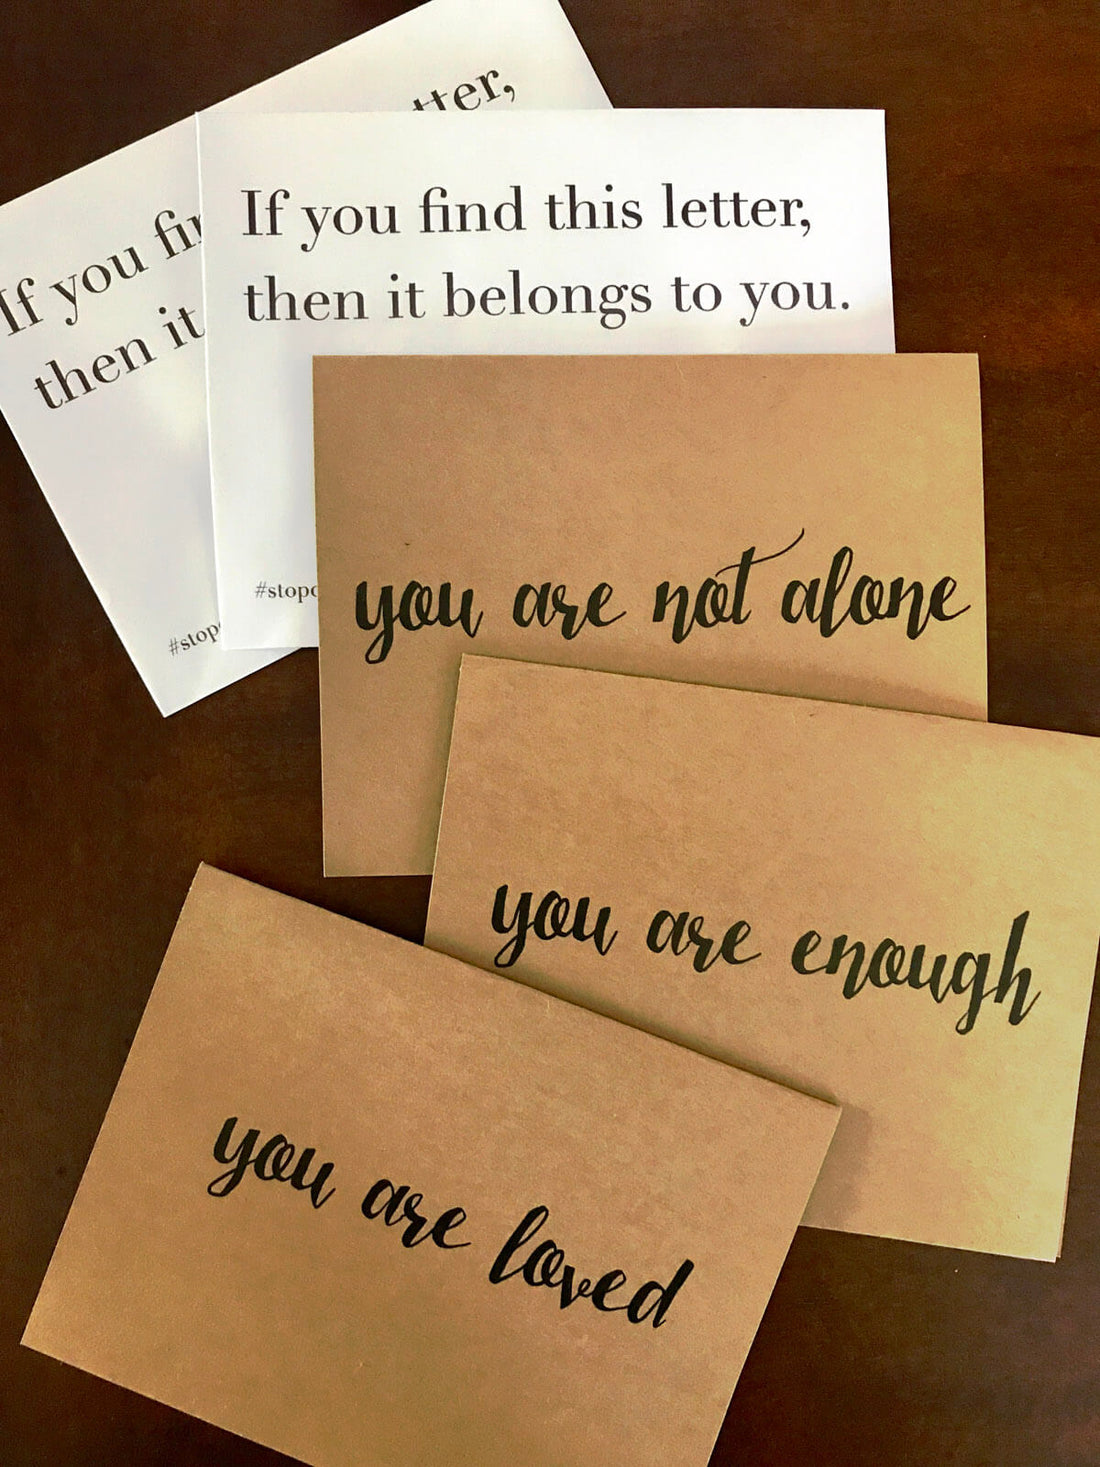 tter,
If you fi
then it
#stop
If you find this letter,
then it belongs to you.
#stop
you are not alone
you are enough
you are loved